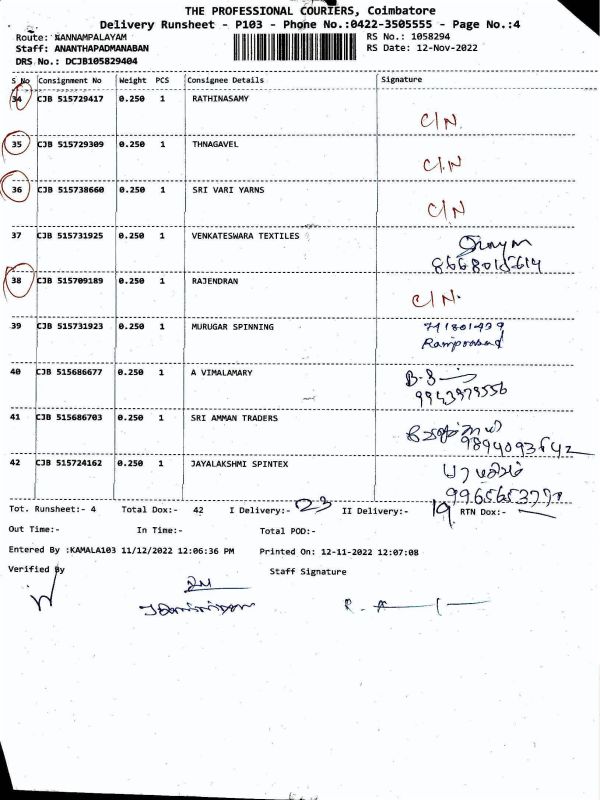 THE PROFESSIONAL COURIERS, Coimbatore
Delivery Runsheet - P103 - Phone No.:0422-3505555 - Page No.:4
Route: KANNAMPALAYAM RS No.: 1058294
Staff: ANANTHAPADMANABAN RS Date: 12-Nov-2022
DRS No.: DCJB105829404
S No Consignment No Weight PCS Consignee Details Signature
34 CJB 515729417 0.250 1 RATHINASAMY
C/N.
35 CJB 515729309 0.250 1 THNAGAVEL
C/N
36 CJB 515738660 0.250 1 SRI VARI YARNS
C/N
37 CJB 515731925 0.250 1 VENKATESWARA TEXTILES
8668015614
38 CJB 515709189 0.250 1 RAJENDRAN
C/N.
39 CJB 515731923 0.250 1 MURUGAR SPINNING
40 CJB 515686677 0.250 1 A VIMALAMARY
9943979556
41 CJB 515686703 0.250 1 SRI AMMAN TRADERS
9894093642
42 CJB 515724162 0.250 1 JAYALAKSHMI SPINTEX
Tot. Runsheet:- 4 Total Dox:- 42 I Delivery:- 23 II Delivery:- 19 RTN Dox:-
Out Time:- In Time:- Total POD:-
Entered By :KAMALA103 11/12/2022 12:06:36 PM Printed On: 12-11-2022 12:07:08
Verified By Staff Signature